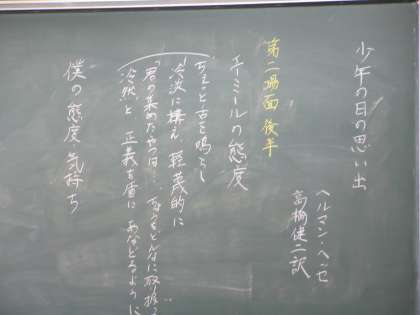 少年の日の思い出
ヘルマン・ヘッセ
高橋健二訳
第二場面後半
エーミールの態度
ちえっと舌を鳴らし
冷淡に構え 軽蔑的に
「君の集めたやつは…ちょうをどんなに取扱っ
冷然と 正義を盾に あなどるように
僕の態度・気持ち